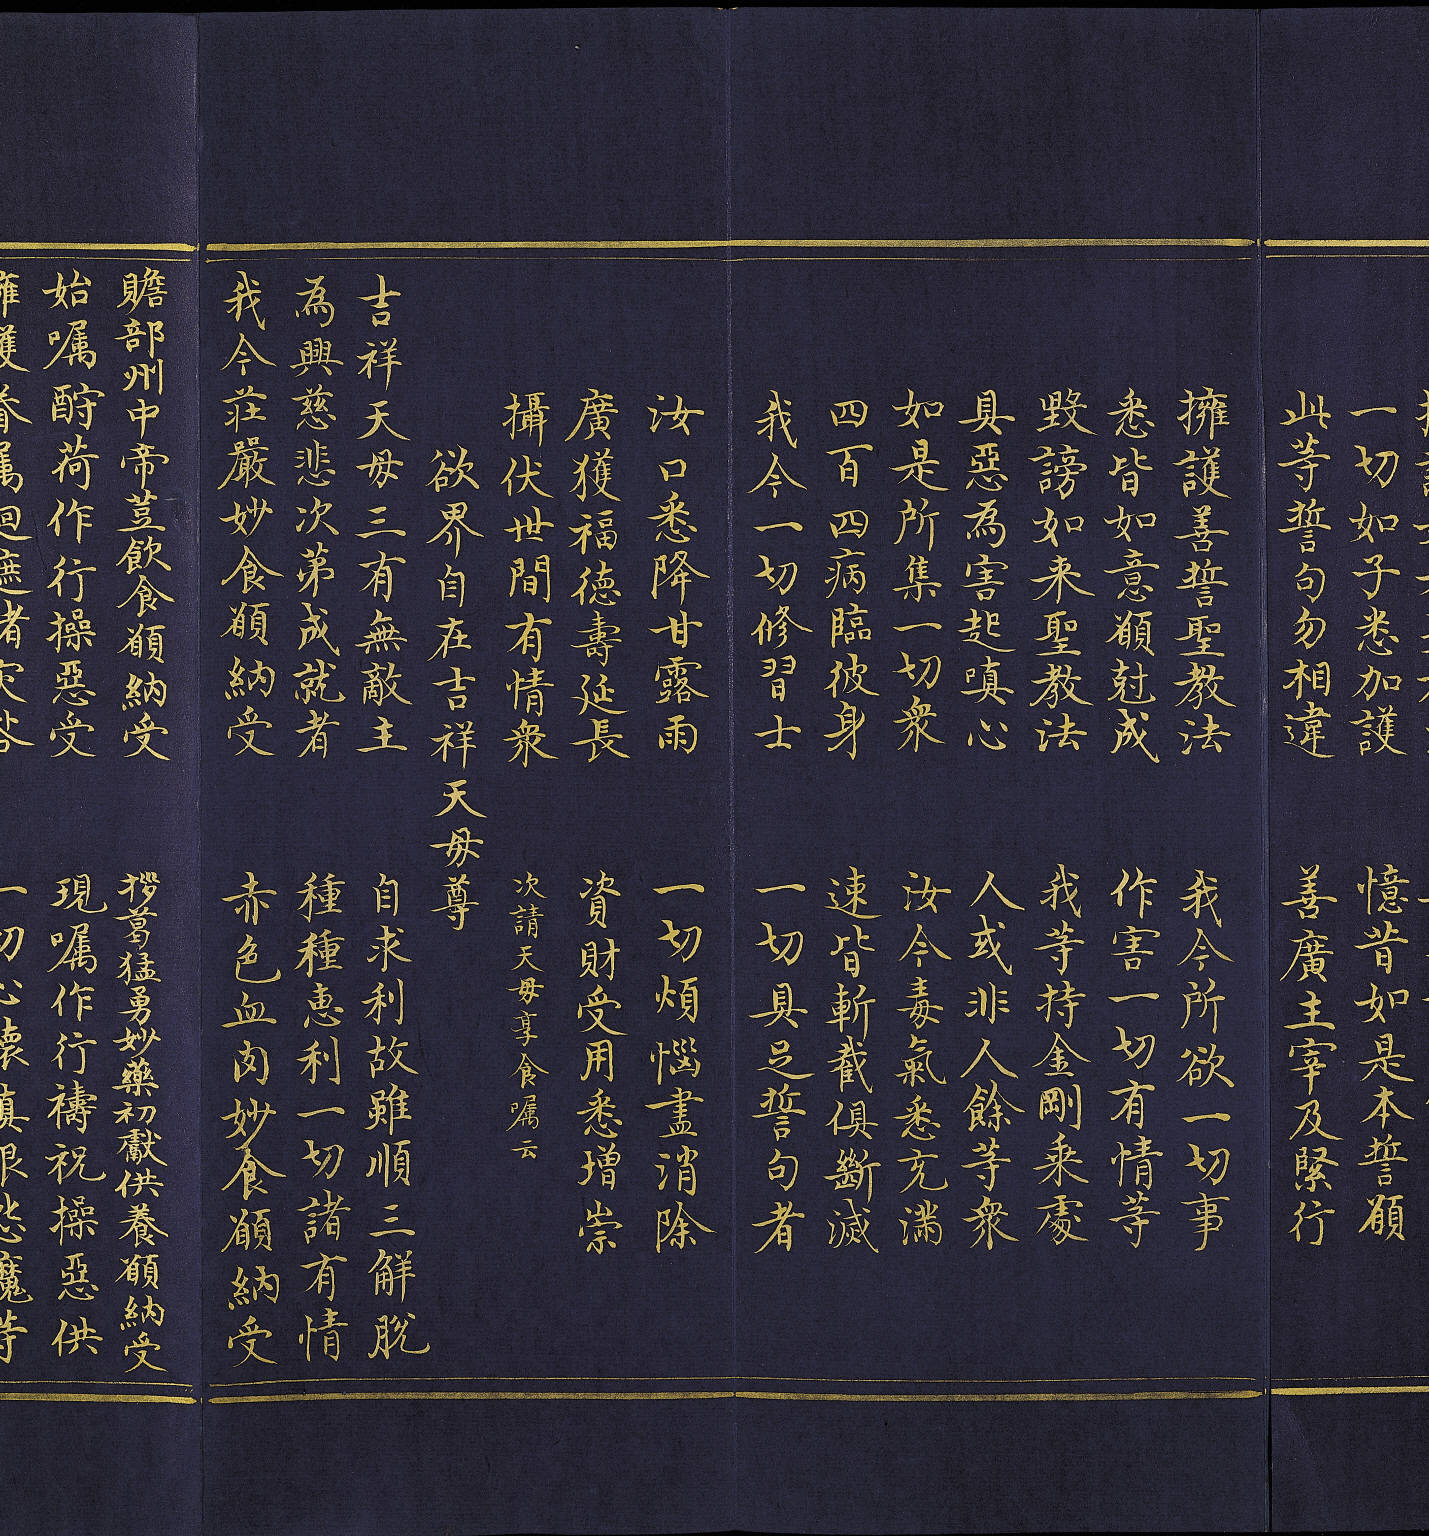 一切如子悉加護　憶昔如是本誓願
此等誓句勿相違　善廣主宰及緊行
擁護善誓聖教法　我今所欲一切事
悉皆如意願尅成　作害一切有情等
毀謗如来聖教法　我等持金剛乘處
具惡為害起嗔心　人或非人餘等衆
如是所集一切衆　汝今毒氣悉充滿
四百四病臨彼身　速皆斬截俱斷滅
我今一切修習士　一切具足誓句者
汝口悉降甘露雨　一切煩惱盡消除
廣獲福德壽延長　資財受用悉增崇
攝伏世間有情衆　次請天母享食嘱云
欲界自在吉祥天母尊
吉祥天母三有無敵主　自求利故雖順三解脫
為興慈悲次第成就者　種種惠利一切諸有情
我今莊嚴妙食願納受　赤色血肉妙食願納受
贍部州中帝荳飲食願納受　拶葛猛勇妙藥初獻供養願納受
始嘱酹荷作行操惡受　現嘱作行禱祝操惡供